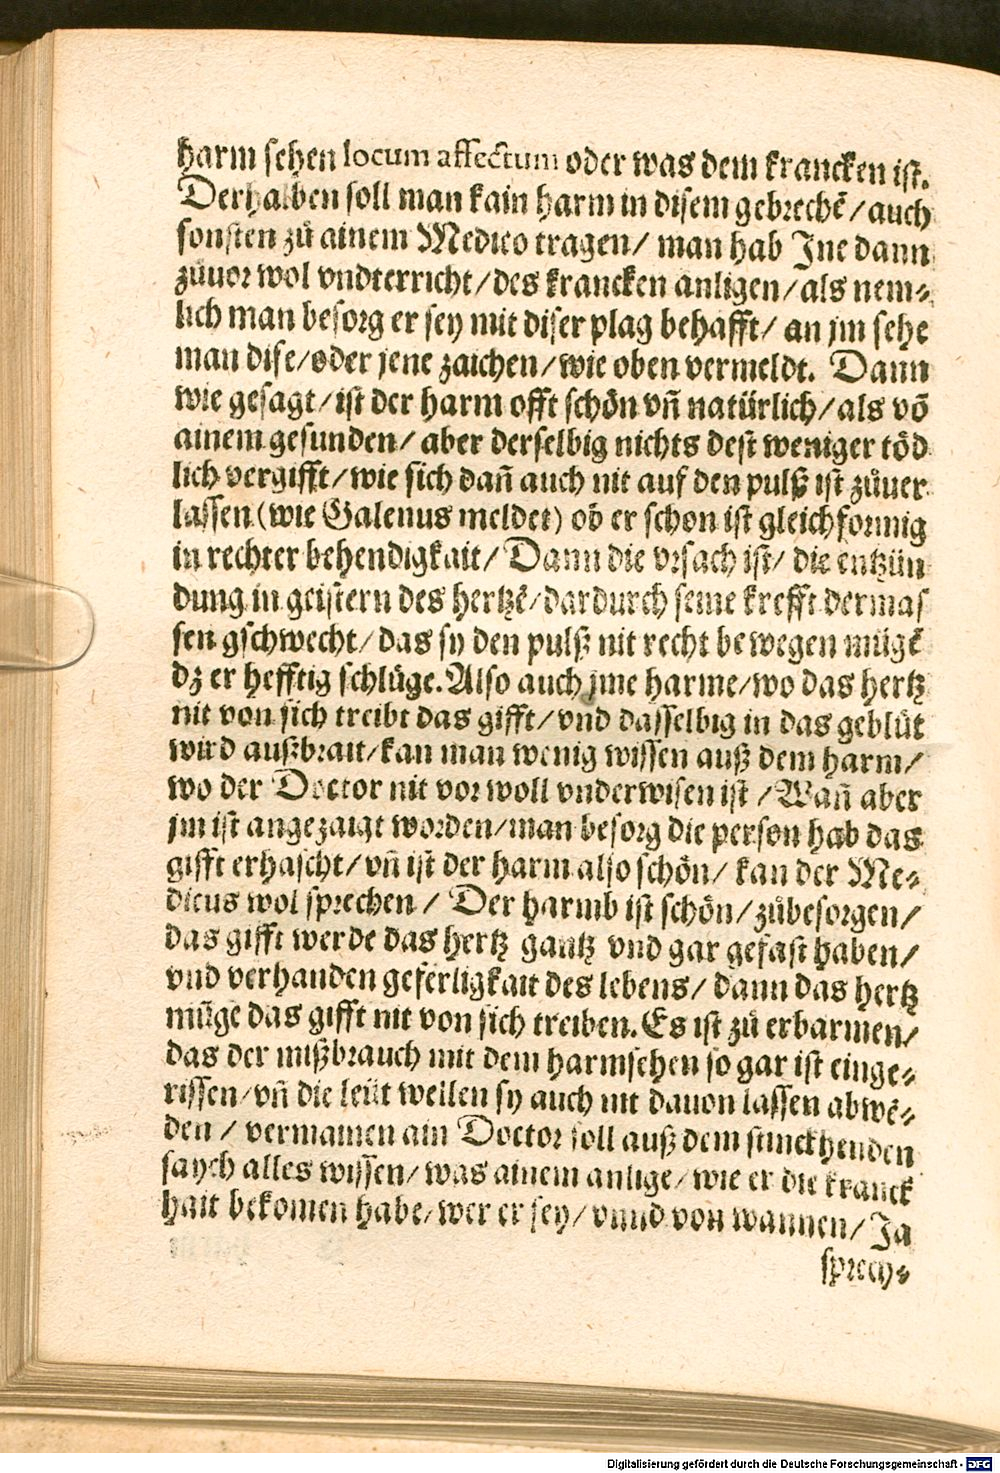 harm sehen locum affectum oder was dem krancken ist.
Derhalben soll man kain harm in disem gebrechẽ/auch
sonsten zů ainem Medico tragen/ man hab Jne dann
zůuor wol vndterricht/des krancken anligen/als nem⸗
lich man besorg er sey mit diser plag behafft/ an jm sehe
man dise/oder jene zaichen/wie oben vermeldt. Dann
wie gesagt/ist der harm offt schön vñ natürlich/als võ
ainem gesunden/ aber derselbig nichts dest weniger töd
lich vergifft/wie sich dañ auch nit auf den pulß ist zůuer
lassen (wie Galenus meldet) ob er schon ist gleichformig
in rechter behendigkait/ Dann die vrsach ist/ die entzün
dung in geistern des hertzẽ/dardurch seine krefft dermas
sen gschwecht/das sy den pulß nit recht bewegen mügẽ
dz er hefftig schlüge. Also auch jme harme/wo das hertz
nit von sich treibt das gifft/vnd dasselbig in das geblüt
wird außbrait/kan man wenig wissen auß dem harm/
wo der Doctor nit vor woll vnderwisen ist /Wañ aber
jm ist angezaigt worden/man besorg die person hab das
gifft erhascht/vñ ist der harm also schön/ kan der Me⸗
dicus wol sprechen / Der harmb ist schön/zůbesorgen/
das gifft werde das hertz gantz vnd gar gefast haben/
vnd verhanden geferligkait des lebens/ dann das hertz
müge das gifft nit von sich treiben. Es ist zů erbarmen/
das der mißbrauch mit dem harmsehen so gar ist einge⸗
rissen/vñ die leüt wellen sy auch nit dauon lassen abwẽ⸗
den / vermainen ain Doctor soll auß dem stinckhenden
saych alles wissen/ was ainem anlige/ wie er die kranck
hait bekomen habe/wer er sey/ vnnd von wannen/ Ja
sprech⸗
Digitalisierung gefördert durch die Deutsche Forschungsgemeinschaft - DFG